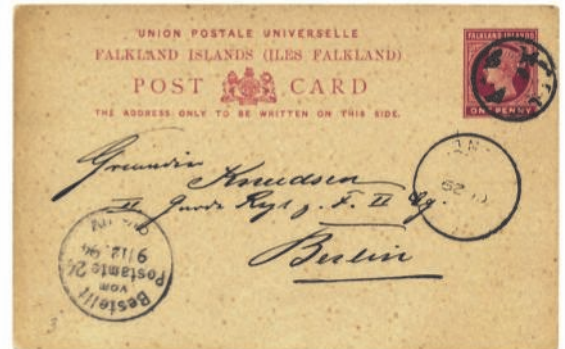 UNION POSTALE UNIVERSELLE
FALKLAND ISLANDS (ILES FALKLAND)
POST CARD
THE ADDRESS ONLY TO BE WRITTEN ON THIS SIDE.
FALKLAND ISLANDS
ONE PENNY
Grenadier
Knudsen
II Garde Regt z. F. II
Berlin
Bestellt
vom
Postamte 24
9/12.